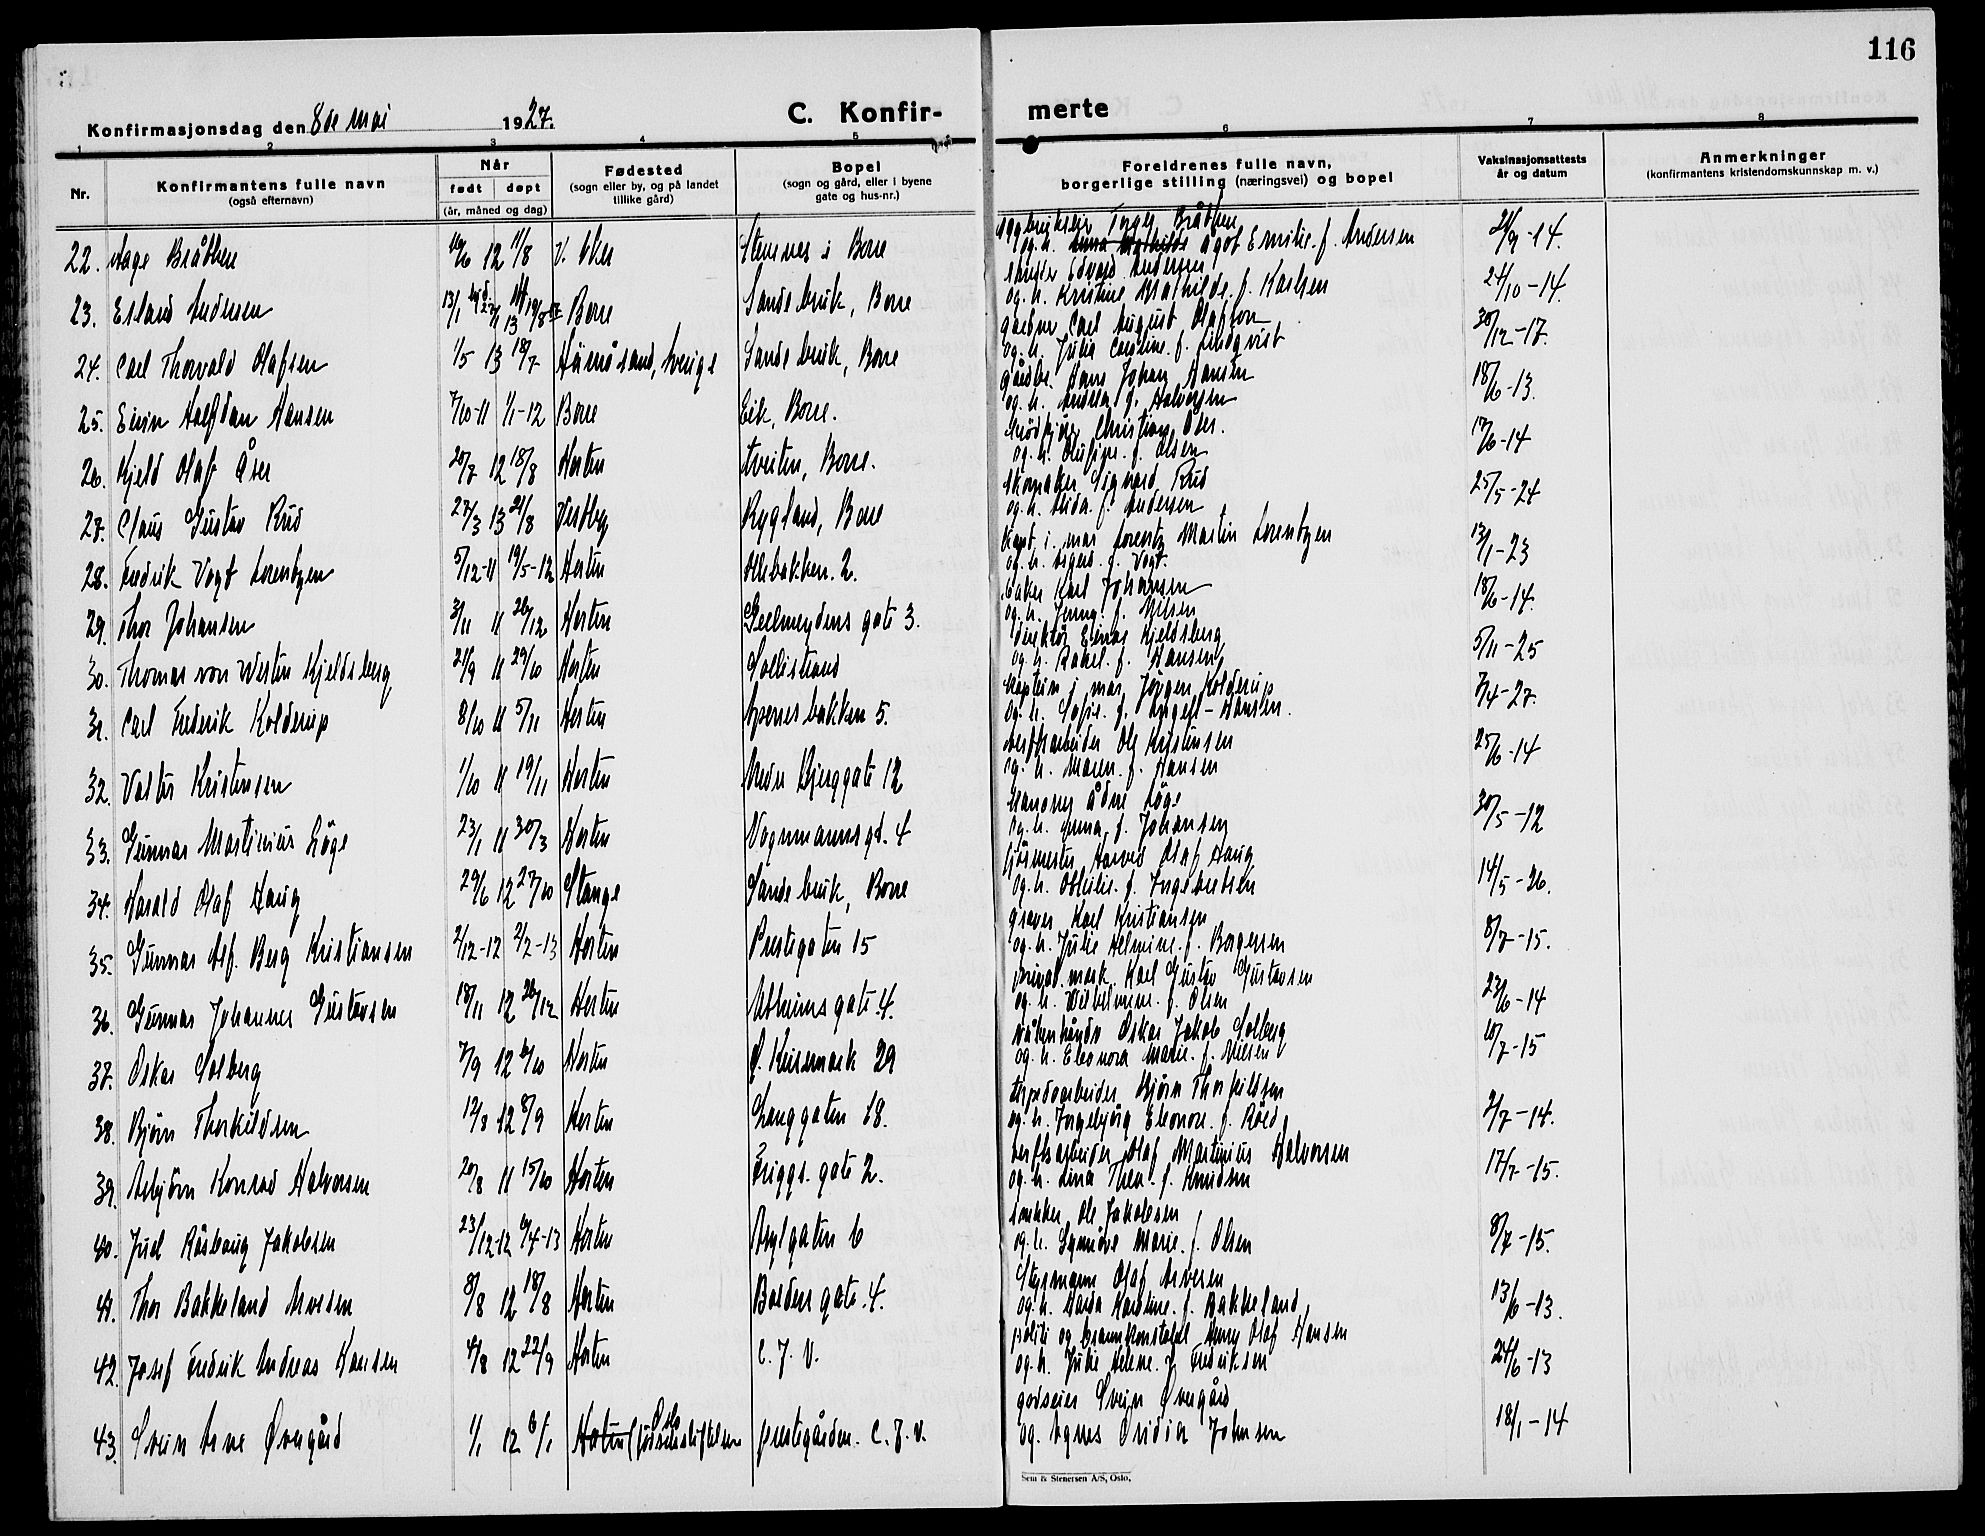 116
Konfirmasjonsdag den 8de mai 1927.
C. Konfir-
merte
1 2 3 4 5 6 7 8
Nr.
Konfirmantens fulle navn
(også efternavn)
Når
født døpt
(år, måned og dag)
Fødested
(sogn eller by, og på landet
tillike gård)
Bopel
(sogn og gård, eller i byene
gate og hus-nr.)
Foreldrenes fulle navn,
borgerlige stilling (næringsvei) og bopel
Vaksinasjonsattests
år og datum
Anmerkninger
(konfirmantens kristendomskunnskap m. v.)
22. Aage Bråthen 12 11/8 V. Aker i Borre
Bråthen
og h. Anna Mathilde Ågot Emilie f. Andersen 14.
23. Erland Andersen 13/1 Borre Sande bruk, Borre
Edvard Andersen
og h. Kristine Mathilde f. Karlsen 24/10-14.
24. Carl Thorvald Olafsen 1/5 13 18/7 Härnösand, Sverige Sande bruk, Borre
gartner Carl August Olafson
og h. Julia Caroline f. Lindqvist 30/12-17.
25. Einar Halfdan Hansen 7/10-11 1/1-12 Borre Eik, Borre.
gårdbr. Hans Johan Hansen
og h. f. Halvorsen 18/6-13.
26. Kjeld Olaf Åser 20/7 12 18/8 Horten Tveiten, Borre.
Christian Åser.
og h. f. Olsen 17/6-14
27. Claus Gustav Rud 27/3 13 24/8 Vestby Rygland, Borre
skomaker Sigvard Rud
og h. f. Andersen 25/5-24
28. Fredrik Vogt Lorentzen 5/12-11 19/5-12 Horten Ollebakken. 2.
kapt. i mar Lorentz Martin Lorentzen
og h. f. Vogt. 13/1-23
29. Thor Johansen 3/11 11 26/12 Horten Geelmuydens gate 3.
baker Karl Johansen
og h. Jenny f. Nilsen 18/6-14.
30. Thomas von Westen Kjeldsberg 21/9 11 29/10 Horten Sollistrand
direktør Einar Kjeldsberg
og h. Rakel f. Hansen 5/11-25
31. Carl Fredrik Kolderup 8/10 11 5/11 Horten bakken 5.
kaptein i mar. Jørgen Kolderup
og h. Sofie f. Angell-Hansen. 7/4-27.
32. Valter Kristensen 1/10 11 19/11 Horten gate 12
verftsarbeider Ole Kristensen
og h. Maren f. Hansen 25/6-14
33. Gunnar Martinius Løge 23/1 11 30/3 Horten Vognmannsgt. 4
Ådne Løge
og h. Anna f. Johansen 30/5-12
34. Harald Olaf Haug 29/6 12 27/10 Stange Sande bruk, Borre
Harald Olaf Haug
og h. Othilie f. Ingebretsen 14/5-26.
35. Gunnar Alf Berg Kristiansen 2/12-12 2/2-13 Horten Prestegaten 15
graver Karl Kristiansen
og h. Julie Helmine f. Borgersen 8/7-15.
36. Gunnar Johannes Gustavsen 18/11 12 26/12 Horten Utheims gate 4.
mask. Karl Gustav Gustavsen
og h. Vilhelmine f. Olsen 23/6-14
37. Oskar Solberg 7/9 12 6/10 Horten Ø. Keisemark 29
Oskar Jakob Solberg
og h. Eleonora Marie f. Nilsen 10/7-15
38. Bjørn Thorkildsen 12/8 12 8/9 Horten Langgaten 18.
torpedoarbeider Bjørn Thorkildsen
og h. Ingebjørg Eleonore f. Røed 2/7-14.
39. Asbjørn Konrad Halvorsen 20/8 11 15/10 Horten Friggs gate 2.
verftsarbeider Olaf Martinius Halvorsen
og h. Lina Thea f. Knudsen 17/7-15.
40. Juel Råsbaug Jakobsen 23/12-12 6/4-13 Horten Asylgaten 6
snekker Ole Jakobsen
og h. Synnøve Marie f. Olsen 8/7-15.
41. Thor Bakkeland Arvesen 8/8 12 18/8 Horten Baldens gate. 4.
Styrmann Olaf Arvesen
og h. Karoline f. Bakkeland 13/6-13.
42. Josef Fredrik Andreas Hansen 4/8 12 22/9 Horten C. J. V.
politi og brannkonstabel Henry Olaf Hansen
og h. Julie Helene f. Fredriksen 24/6-13
43. Svein Arne Øvergård 1/1 12 6/1 Horten (Oslo fødselsstiftelsen prestegården. C. J. V.
godseier Svein Øvergård
og Agnes Ovidia Johnsen 18/1-14
Sem & Stenersen A/S, Oslo.